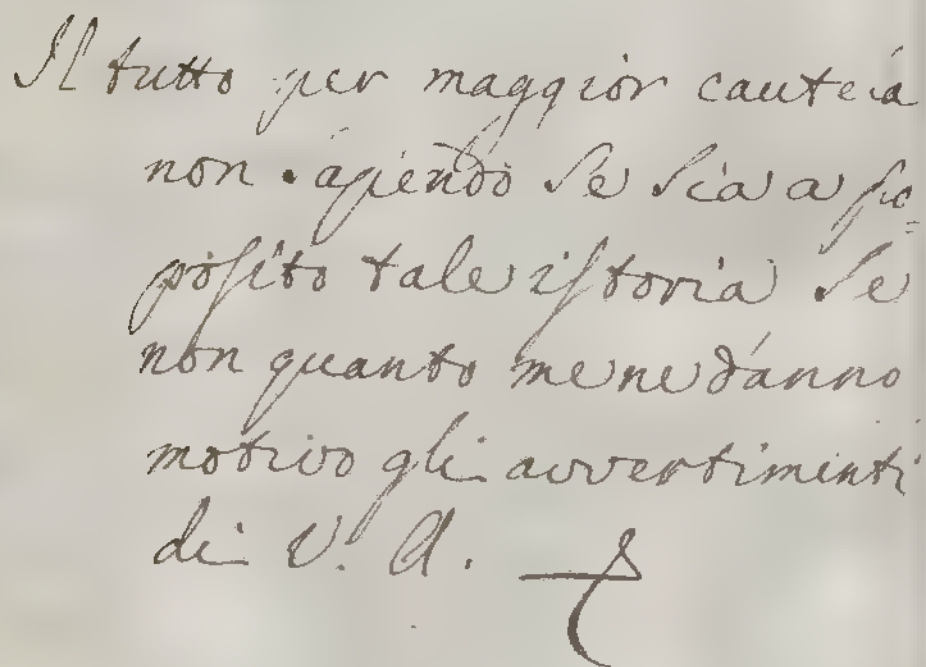 Il tutto per maggior cautela
non sapiendo se sia a pro=
posito tale istoria se
non quanto me ne danno
motivo gli avvertimenti
di V. A.